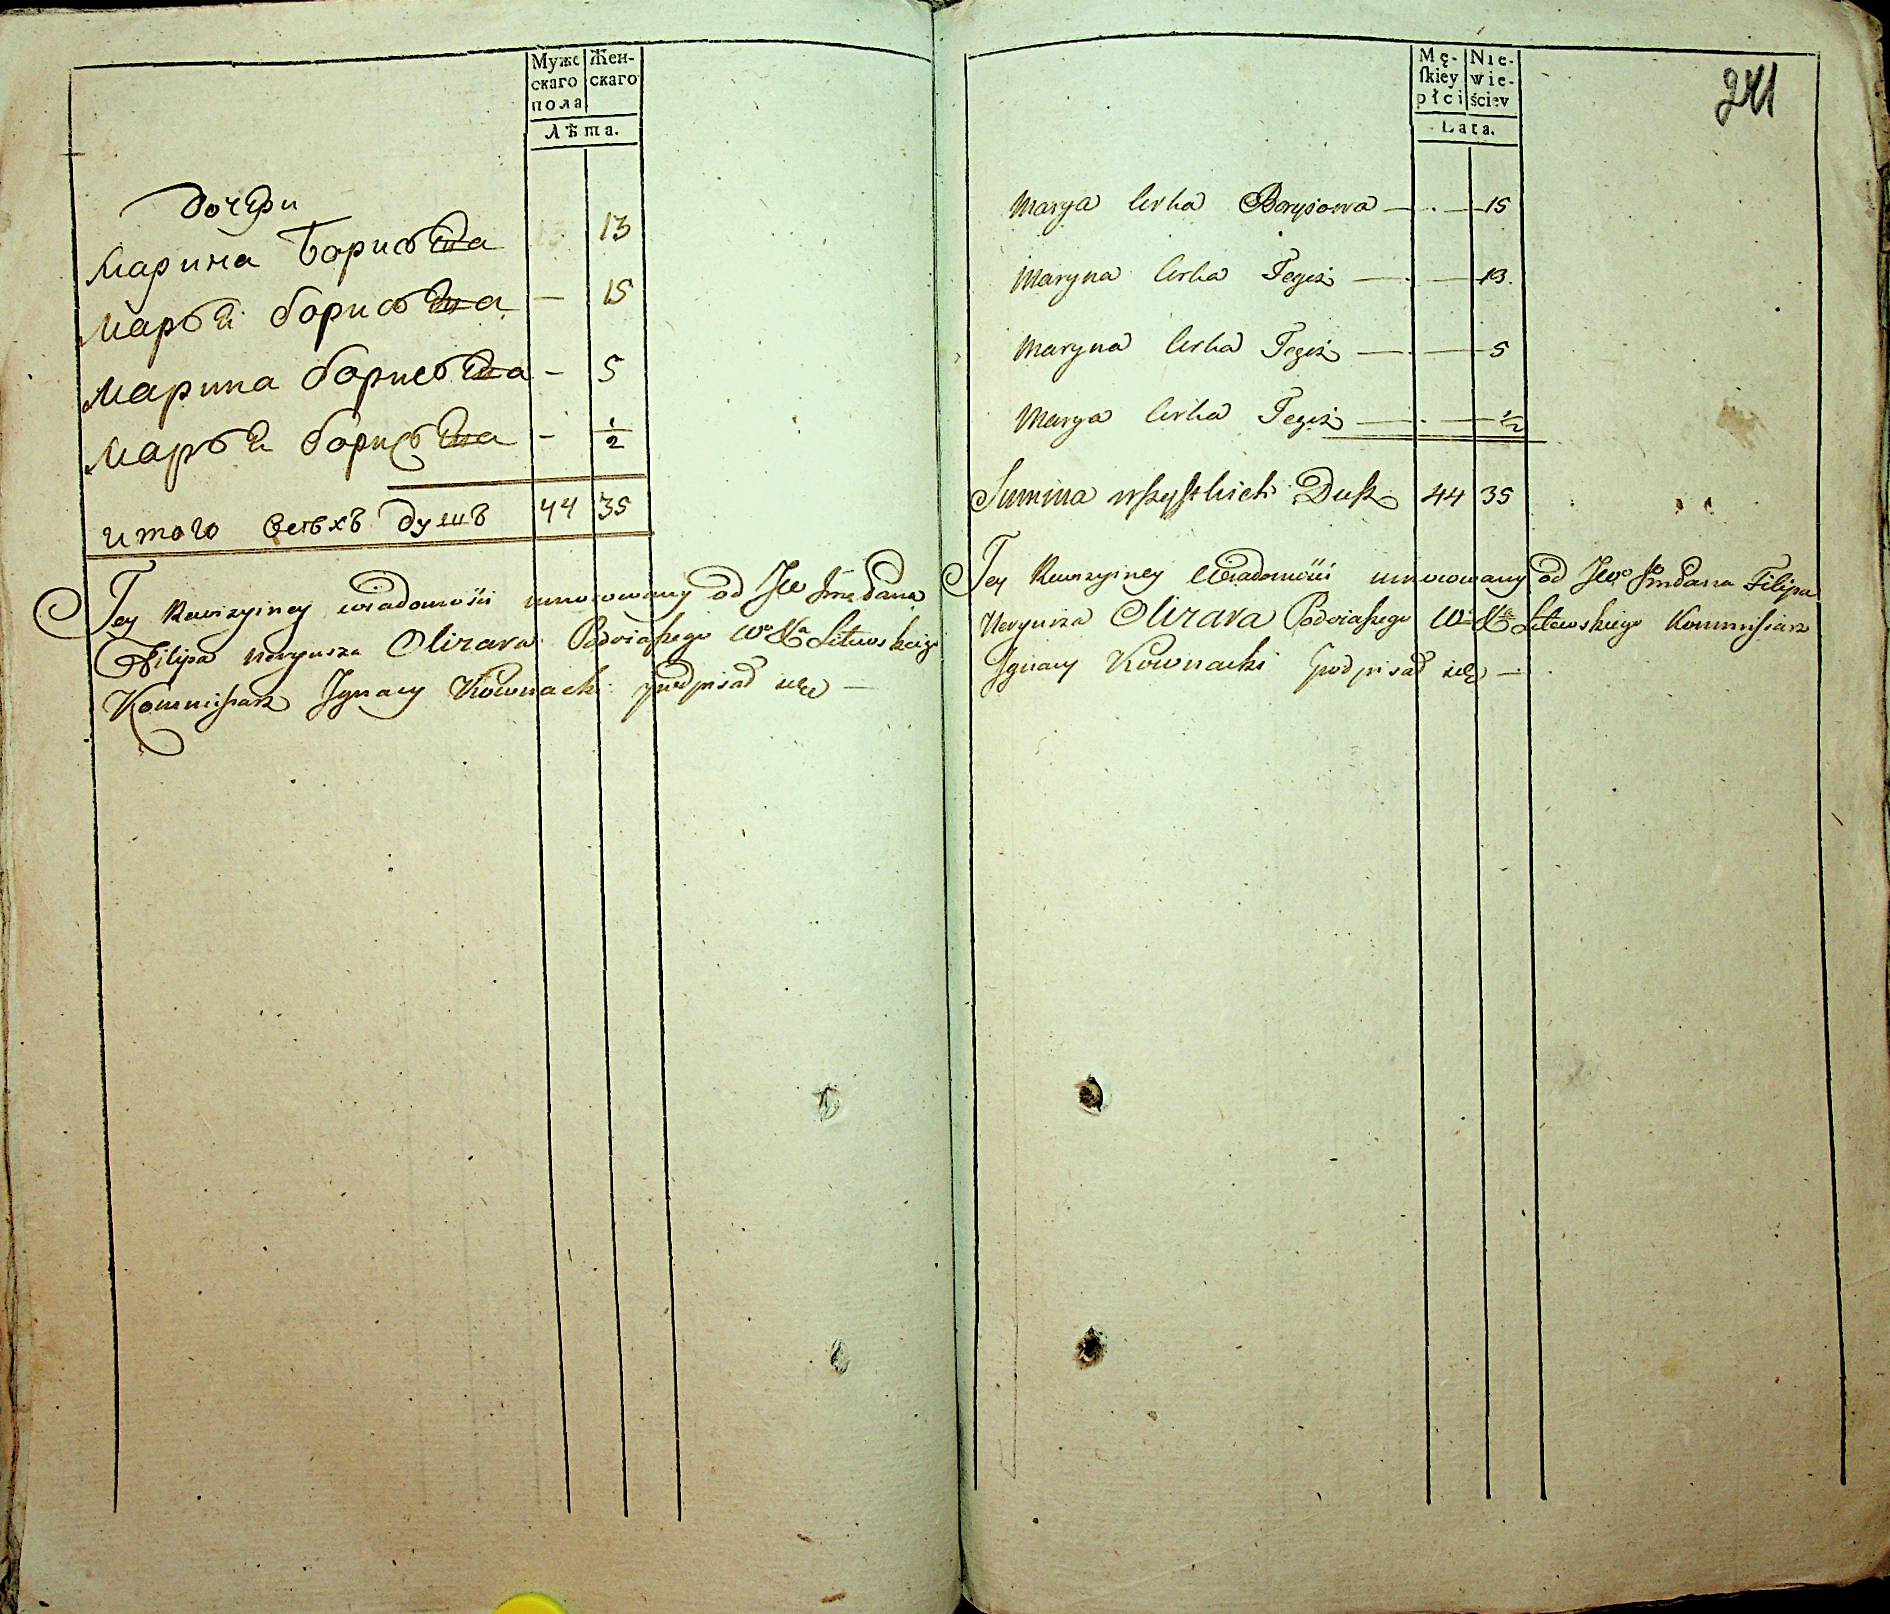 Муже скаго пола
Жен- скаго
Лѣта.
дочери
Марина Борисова 13
Марья борисова — 15
Марина борисова — 5
Марья борисова — 1/2
итого всѣхъ душъ 44 35
Tey Rewizyiney wiadomości umocowany od JW Jmć Pana
Filipa Olizara Podczaszego Wo Xa Litewskiego
Kommissarz Ignacy Kownacki podpisał się —
241
Mę- skiey płci
Nie- wie- ściey
Lata.
Marya Corka Borysowa — 15
Maryna Corka Tegoż — 13
Maryna Corka Tegoż — 5
Marya Corka Tegoż — 1/2
Summa wszystkich Dusz 44 35
Tey Rewizyiney Wiadomości umocowany od JWo Jm Pana Filipa
Olizara Podczaszego Wo Xa Litewskiego Kommissarz
Ignacy Kownacki podpisał się —